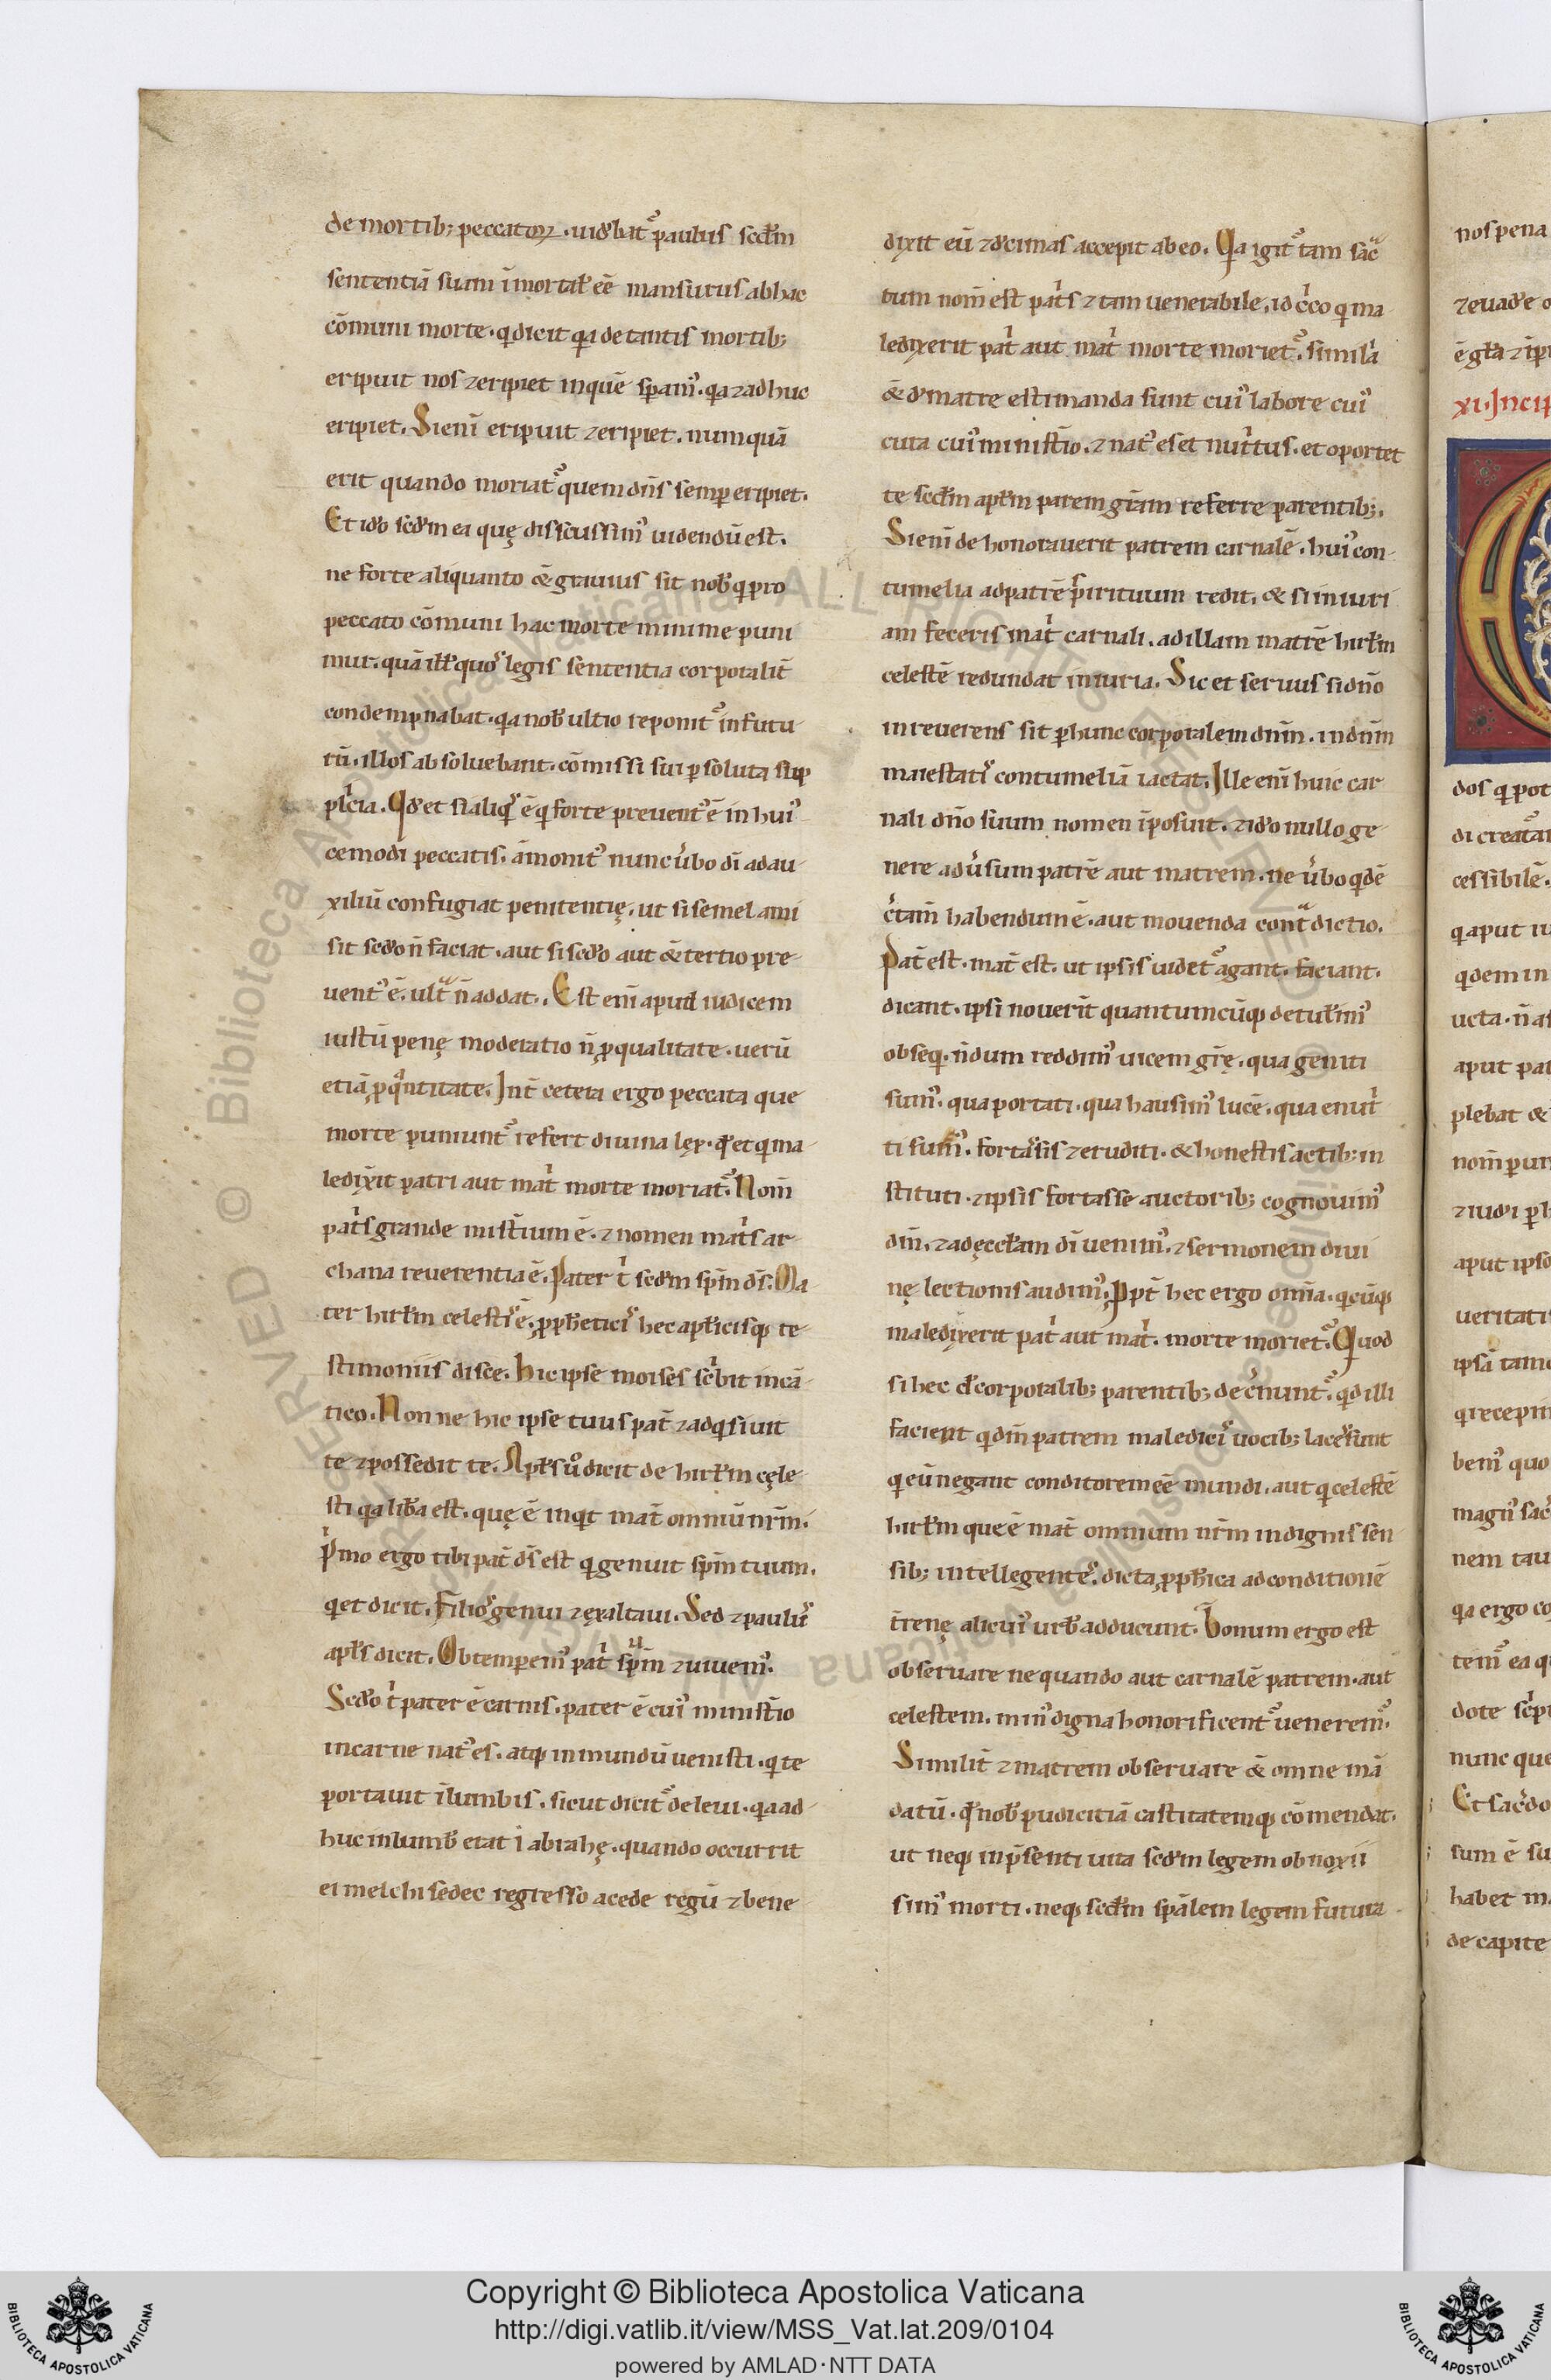 de mortib; peccatoꝝ. uidebat᷒ paulus scđm
sententiā suam ī mortalē eē mansurus ab hac
cōmuni morte. q dicit qa de tantis mortib;
eripuit nos ⁊ eripiet in quē sꝑam᷒. qa ⁊ adhuc
eripiet. Si enī eripuit ⁊ eripiet. numquā
erit quando moriat᷒ quem dn̄s semꝑ eripiet.
Et ido scđm ea quę discussim᷒ uidendū est.
ne forte aliquanto & grauius sit nob̄ q pro
peccato cōmuni hac morte minime puni
mur. quā ill̄ quos legis sententia corporalit̄
condempnabat. qa nob̄ ultio reponit᷒ in futu
rū. illos absoluebant. cōmissi sui ꝑsoluta sup
plicia. Qd et si aliqs ē q forte preuent᷒ ē in hui᷒
cemodi peccatis. āmonit᷒ nunc ūbo dī ad au
xiliū confugiat penitentię. ut si semel ami
sit scđo n̄ faciat. aut si scđo aut & tertio pre
uent᷒ ē. ultᵃ n̄ addat. Est enī apud iudicem
iustū penę moderatio n̄ ꝓ qualitate. uerū
etiā ꝓ qͣntitate. Int̄ cetera ergo peccata que
morte puniunt᷒ refert diuina lex. qđ et q ma
ledixit patri aut mat̍ morte moriat᷒. Nom̄
pat̍s grande mist̄ium ē. ⁊ nomen mat̍s ar
chana reuerentia ē. Pater t̍ scđm sp̄m ds̄. Ma
ter hirl̄m celestis ē. ꝓph̄eticis hec apl̄icisq; te
stimoniis disce. Hic ipse moises sc̍bit in cā
tico. Non ne hic ipse tuus pat̄ ⁊ adqsiuit
te ⁊ possedit te. Apl̄s ůo dicit de hirl̄m cęle
sti qa lib̄a est. quę ē inqt mat̄ omniū nr̄m.
P̍mo ergo tibi pat̄ ds̄ est q genuit sp̄m tuum.
q et dicit. Filios genui ⁊ exaltaui. Sed ⁊ paulus
apl̄s dicit. Obtemꝑem᷒ pat̍ sp̄uum ⁊ uiuem᷒.
Scđo t̍ pater ē carnis. pater ē cui᷒ minist̄io
in carne nat᷒ es. atq; in mundū uenisti. q te
portauit ī lumbis. sicut dicit᷒ de leui. qa ad
huc in lumb̄ erat ī abrahę. quando occurrit
ei melchisedec regresso a cede regū ⁊ bene
dixit eū ⁊ decimas accepit ab eo. Qa igit᷒ tam sāc
tum nom̄ est pat̍s ⁊ tam uenerabile. idc̍co q ma
ledixerit pat̍ aut mat̍ morte moriet᷒. simil̍a
& de matre estimanda sunt cui᷒ labore cui᷒
cura cui᷒ minist̄io. ⁊ nat᷒ es et nut̍tus. et oportet
te scđm apl̄m parem gr̄am referre parentib;.
Si enī de honorauerit patrem carnalē. hui᷒ con
tumelia ad patrē sp̍irituum redit. & si iniuri
am feceris mat̍ carnali. ad illam matrē hirl̄m
celestē redundat iniuria. Sic et seruus si dn̄o
inreuerens sit ꝑ hunc corporalem dn̄m. in dn̄m
maiestatis contumeliā iactat. Ille enī huic car
nali dn̄o suum nomen īposuit. ⁊ ido nullo ge
nere adūsum patrē aut matrem. ne ūbo qdē
c̄tam̄ habendum ē. aut mouenda contᵃdictio.
Pat̄ est. mat̄ est. ut ipsis uidet᷒ agant. faciant.
dicant. ipsi nouerīt quantumcūq; detul̄im᷒
obseq. n̄dum reddim᷒ uicem gr̄ę. qua geniti
sum᷒. qua portati. qua hausim᷒ lucē. qua enut̍
ti sum᷒. fortasis ⁊ eruditi. & honestis actib; in
stituti. ⁊ ipsis fortasse auctorib; cognouim᷒
dm̄. ⁊ ad ęccl̄am dī uenim᷒. ⁊ sermonem diui
nę lectionis audim᷒. Ppt̄ hec ergo omīa. qcūq;
maledixerit pat̍ aut mat̍. morte moriet᷒. Quod
si hec d̄ corporalib; parentib; dec̄nunt᷒. qd illi
facient q dm̄ patrem maledicis uocib; lacessunt
q eū negant conditorem eē mundi. aut q celestē
hirl̄m que ē mat̄ omnium nr̄m indignis sen
sib; intellegentes. dicta ꝓph̄ica ad conditionē
t̄renę alicui᷒ urb̄ adducunt. Bonum ergo est
obseruare ne quando aut carnalē patrem. aut
celestem. min᷒ digna honorificent᷒ uenerem᷒.
Similit̄ ⁊ matrem obseruare & omne mā
datū. qđ nob̄ pudicitiā castitatemq; cōmendat.
ut neq; in p̄senti uita scđm legem obnoxii
sim᷒ morti. neq; scđm sp̄alem legem futura
nos pena
⁊ euade
xi. Incip
dos q pot
di creat᷒a
cessibilē.
q aput
qdem in
ucta. n̄ as
aput pat
plebat &
nom̄ ꝑ un
aput ipso
ueritatis
q recepit
bem᷒ quo
nem tau
qa ergo co
tem᷒ ea q
dote sc̍pt
nunc que
Et sac̄do
sum ē su
habet m
de capite
Copyright © Biblioteca Apostolica Vaticana
http://digi.vatlib.it/view/MSS_Vat.lat.209/0104
powered by AMLAD·NTT DATA
BIBLIOTECA APOSTOLICA VATICANA
BIBLIOTECA APOSTOLICA VATICANA